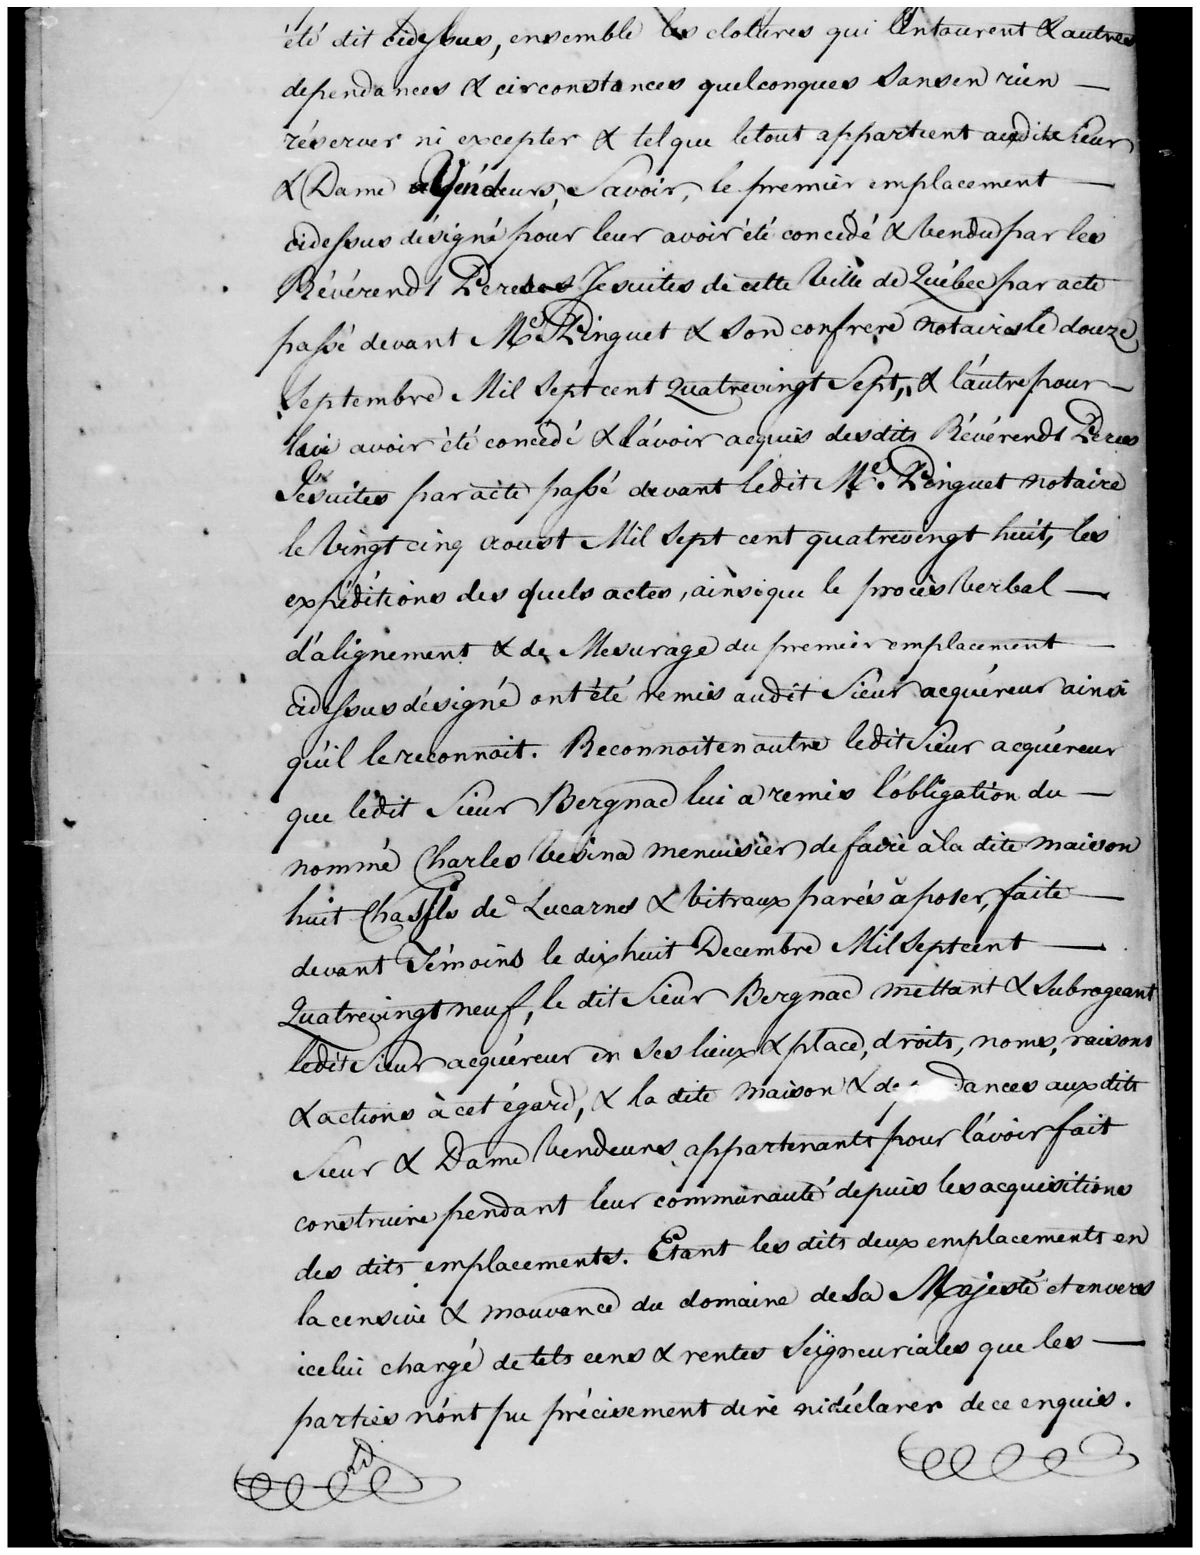 été dit cidessus, ensemble les clotures qui l'entourent & autres
dependances & circonstances quelconques sans en rien —
réserver ni excepter & tel que le tout appartient audits Sieur
& Dame Vendeurs, Savoir, le premier emplacement —
cidessus désigné pour leur avoir été concedé & vendu par les
Révérends Peres Jesuites de cette Ville de Québec par acte
passé devant Me. Pinguet & son confrere notaires le douze
Septembre Mil Sept cent Quatrevingt Sept, & l'autre pour —
avoir été concédé & l'avoir acquis desdits Révérends Peres
Jésuites par acte passé devant ledit Me. Pinguet notaire
le Vingt cinq aoust Mil Sept cent quatrevingt huit, les
expéditions des quels actes, ainsi que le procès Verbal —
d'alignement & de Mesurage du premier emplacement —
cidessus désigné ont été remis audit Sieur acquéreur ainsi
qu'il le reconnoit. Reconnoit en outre ledit Sieur acquéreur
que ledit Sieur Bergnac lui a remis l'obligation du —
nommé Charles Vesina menuisier de faire à la dite maison
huit Chassils de Lucarnes & Vitraux parés à poser, faite —
devant Témoins le dix huit Decembre Mil Sept cent —
Quatrevingt neuf, le dit Sieur Bergnac mettant & Subrogeant
ledit Sieur acquéreur en ses lieux & place, droits, noms, raisons
& actions à cet égard, & la dite maison & de dances aux dits
Sieur & Dame Vendeurs appartenants pour l'avoir fait
construire pendant leur communauté depuis les acquisitions
des dits emplacements. Etant les dits deux emplacements en
la censive & mouvance du domaine de Sa Majesté et envers
icelui chargé de tels cens & rentes Seigneuriales que les —
parties n'ont pu précisement dire ni déclarer de ce enquis.